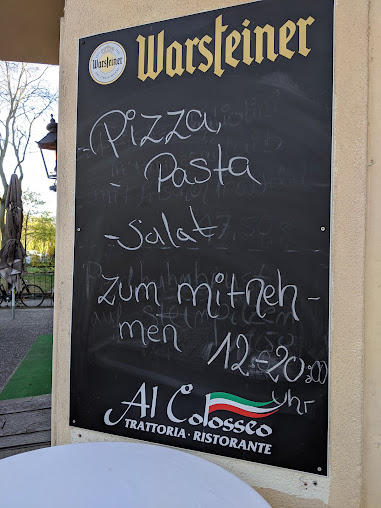 Warsteiner
Warsteiner
- Pizza,
- Pasta
- Salat
zum mitneh-
men 12 - 20:00
Uhr
Al Colosseo
TRATTORIA · RISTORANTE